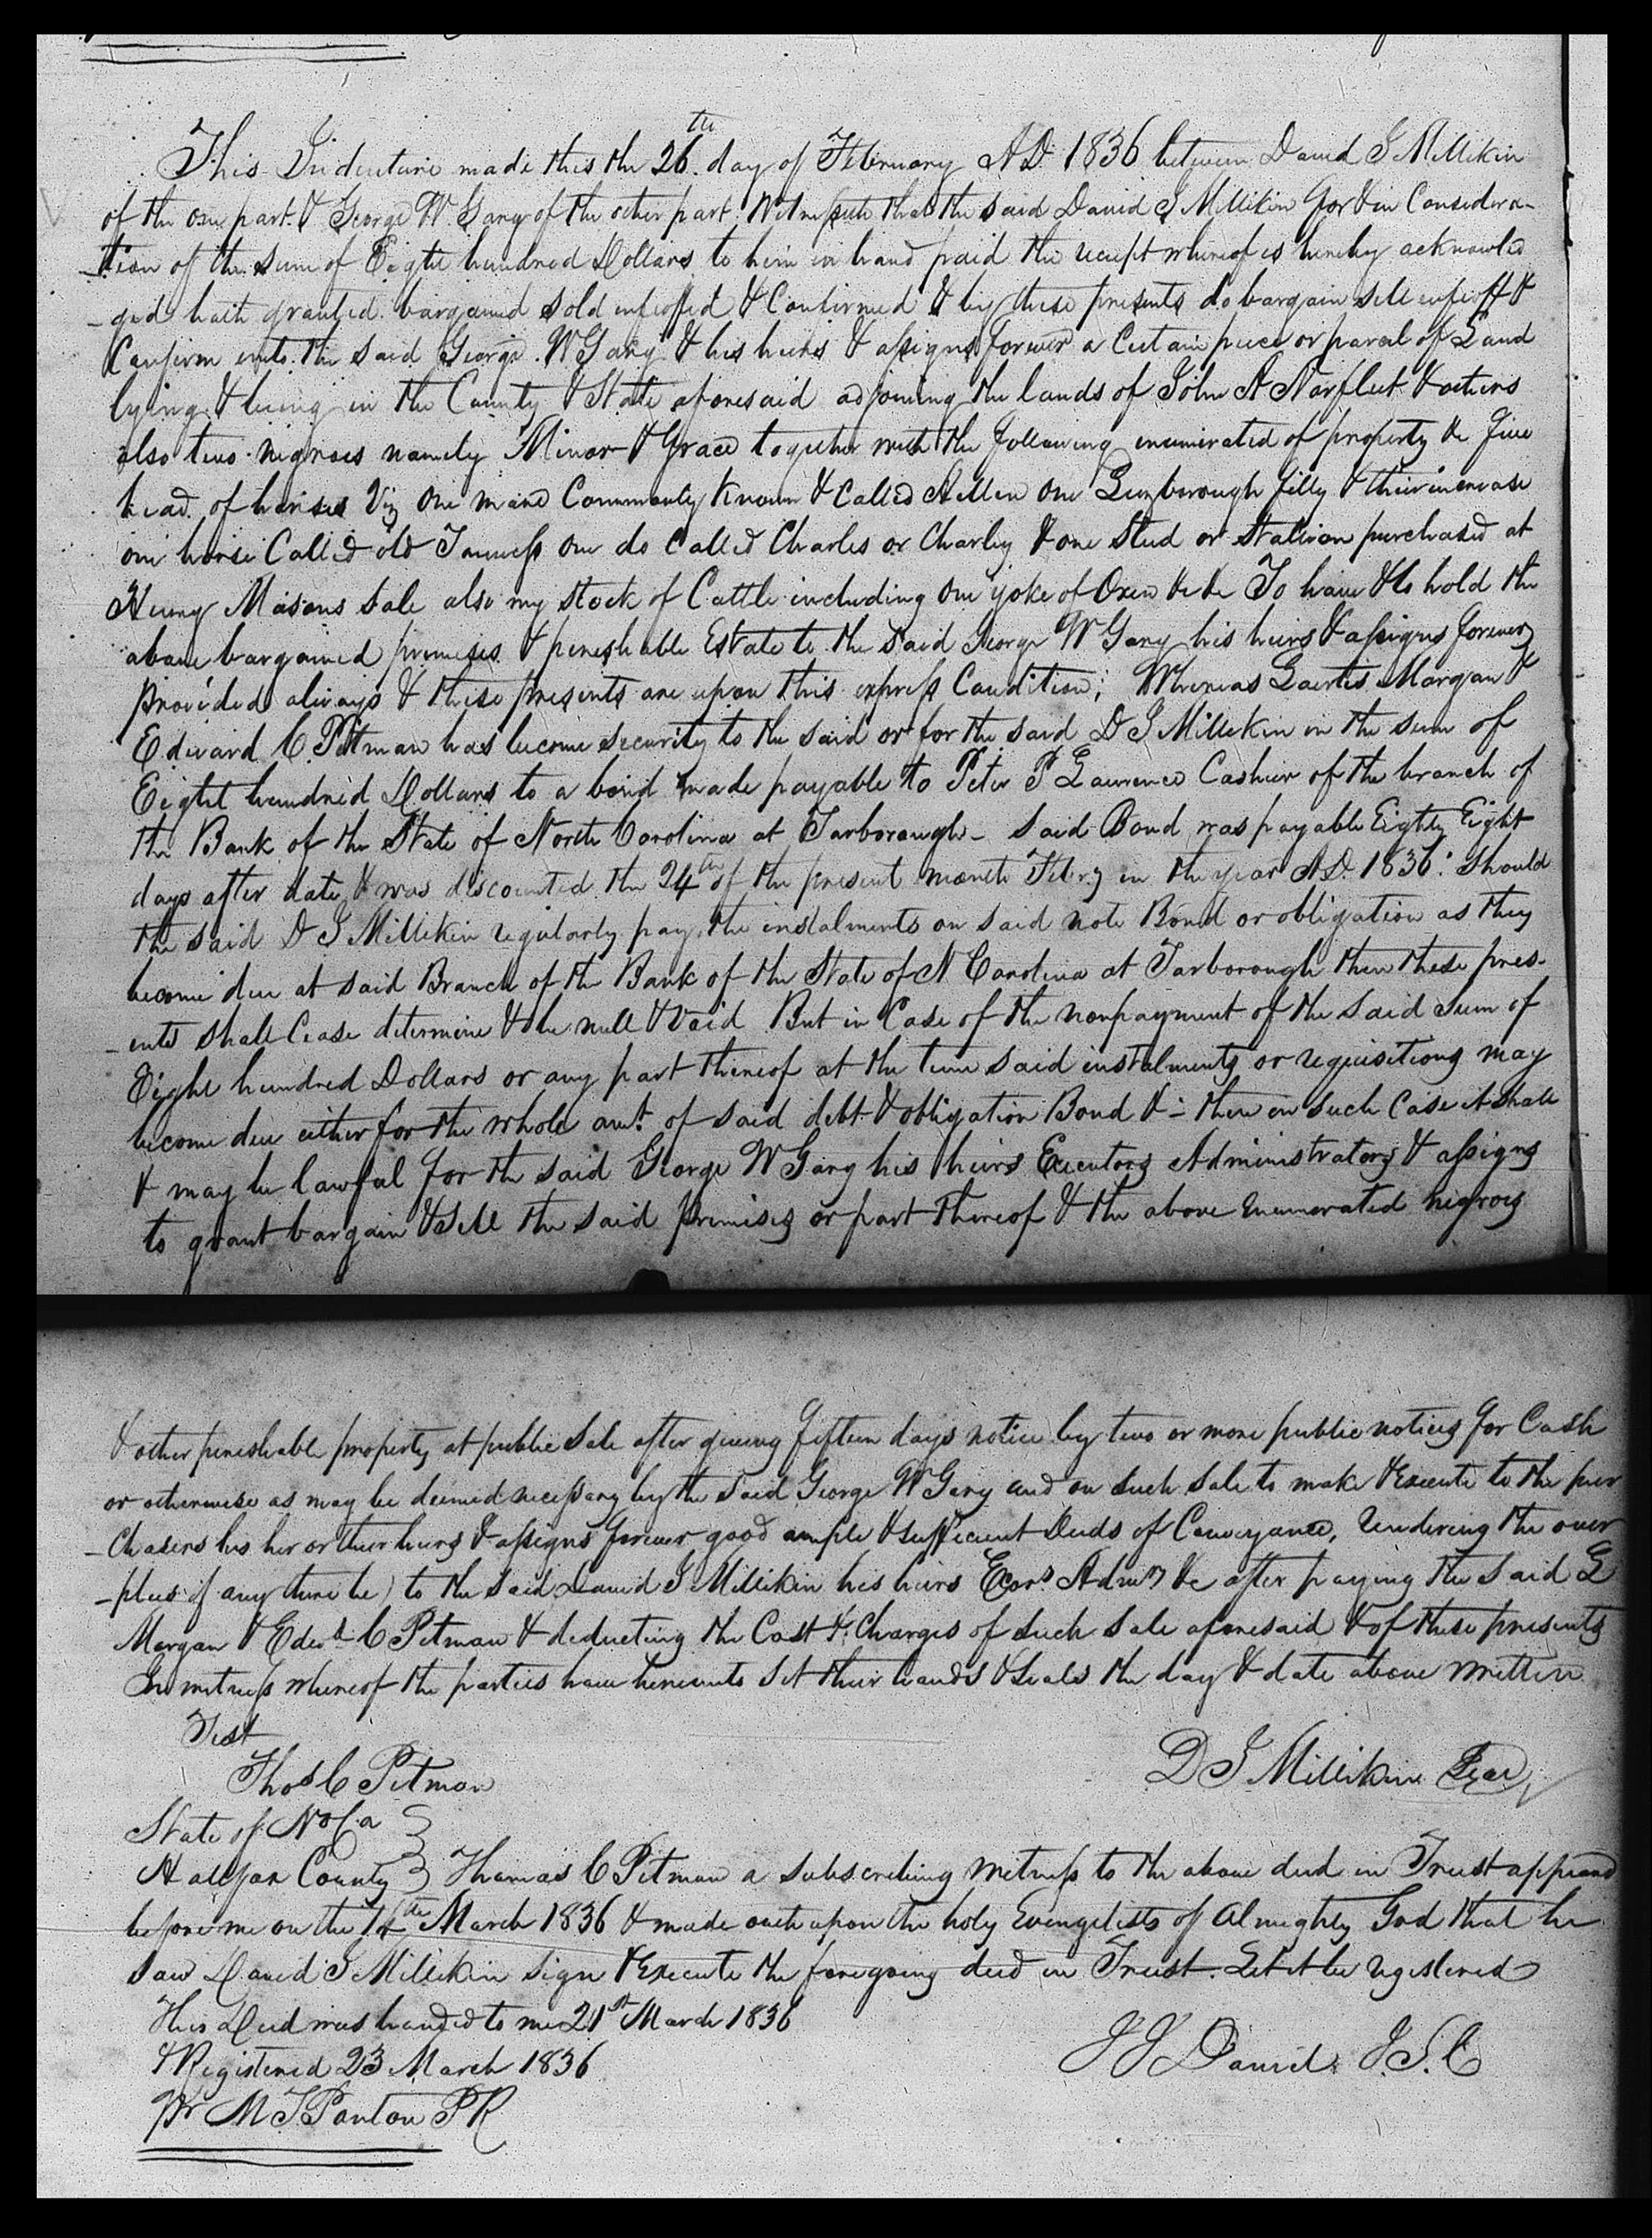 This Indenture made this the 26th day of February AD. 1836 between David S Millikin
of the one part. & George W Gary of the other part. Witnesseth that the said David S Millikin for & in Considera-
-tion of the sum of Eight hundred Dollars to him in hand paid the receipt whereof is hereby acknowled
-ged hath granted bargained sold enfeoffed & Confirmed & by these presents do bargain sell enfeoff &
Confirm unto the said George W Gary & his heirs & assigns forever a Certain piece or parcel of Land
lying & being in the County & State aforesaid adjoining the lands of John A Norfleet & others
also two negroes namely Minor & Grace together with the following enumerated of property &c five
head of horses Viz one mare Commonly Known & Called Aellen one Luzborough filly & their increase
one horse Called old one do Called Charles or Charley & one Stud or Stallion purchased at
Henry Masons Sale also my stock of Cattle including one yoke of Oxen &c &c To have & to hold the
above bargained premises & perishable Estate to the said George W Gary his heirs & assigns forever
provided always & these presents are upon this express Condition; Whereas Laertis Morgan &
Edward C. Pitman has become security to the said or for the said D S Millikin in the sum of
Eight hundred Dollars to a bond made payable to Peter P Lawrence Cashier of the branch of
the Bank of the State of North Carolina at Tarborough - Said Bond was payable Eighty Eight
days after date & was discounted the 24th of the present month Febry in the year AD. 1836: Should
the said D S Millikin regularly pay the instalments on said note Bond or obligation as they
become due at said Branch of the Bank of the State of N Carolina at Tarborough then these pres-
-ents shall Cease determine & be null & void But in Case of the nonpayment of the said Sum of
Eight hundred Dollars or any part thereof at the time said instalments or requisitions may
become due either for the whole amt. of said debt & obligation Bond & - then in such Case it shall
& may be lawful for the said George W Gary his heirs Executors Administrators & assigns
to grant bargain & Sell the said premises or part thereof & the above enumerated negroes
& other perishable property at public Sale after giving fifteen days notice by two or more public notices for Cash
or otherwise as may be deemed necessary by the said George W Gary and on such Sale to make & Execute to the pur
-Chasers his her or their heirs & assigns forever good ample & sufficient Deeds of Conveyance, rendering the over
-plus if any there be) to the said David S Millikin his heirs Exors Admrs &c after paying the said L
Morgan & Edwd C Pitman & deducting the Cost & Charges of such Sale aforesaid & of these presents
In witness whereof the parties have hereunto set their hands & seals the day & date above written
Test
Thos C Pitman
D S Millikin Seal
State of No Ca
Halifax County } Thomas C Pitman a subscribing witness to the above deed in Trust appeared
before me on the March 1836 & made oath upon the holy Evangelists of Almighty God that he
saw David S Millikin sign & Execute the foregoing deed in Trust. Let it be registered
This Deed was handed to me 21st March 1836
J J Daniel J.S.C
& Registered 23 March 1836
pr M T Ponton PR